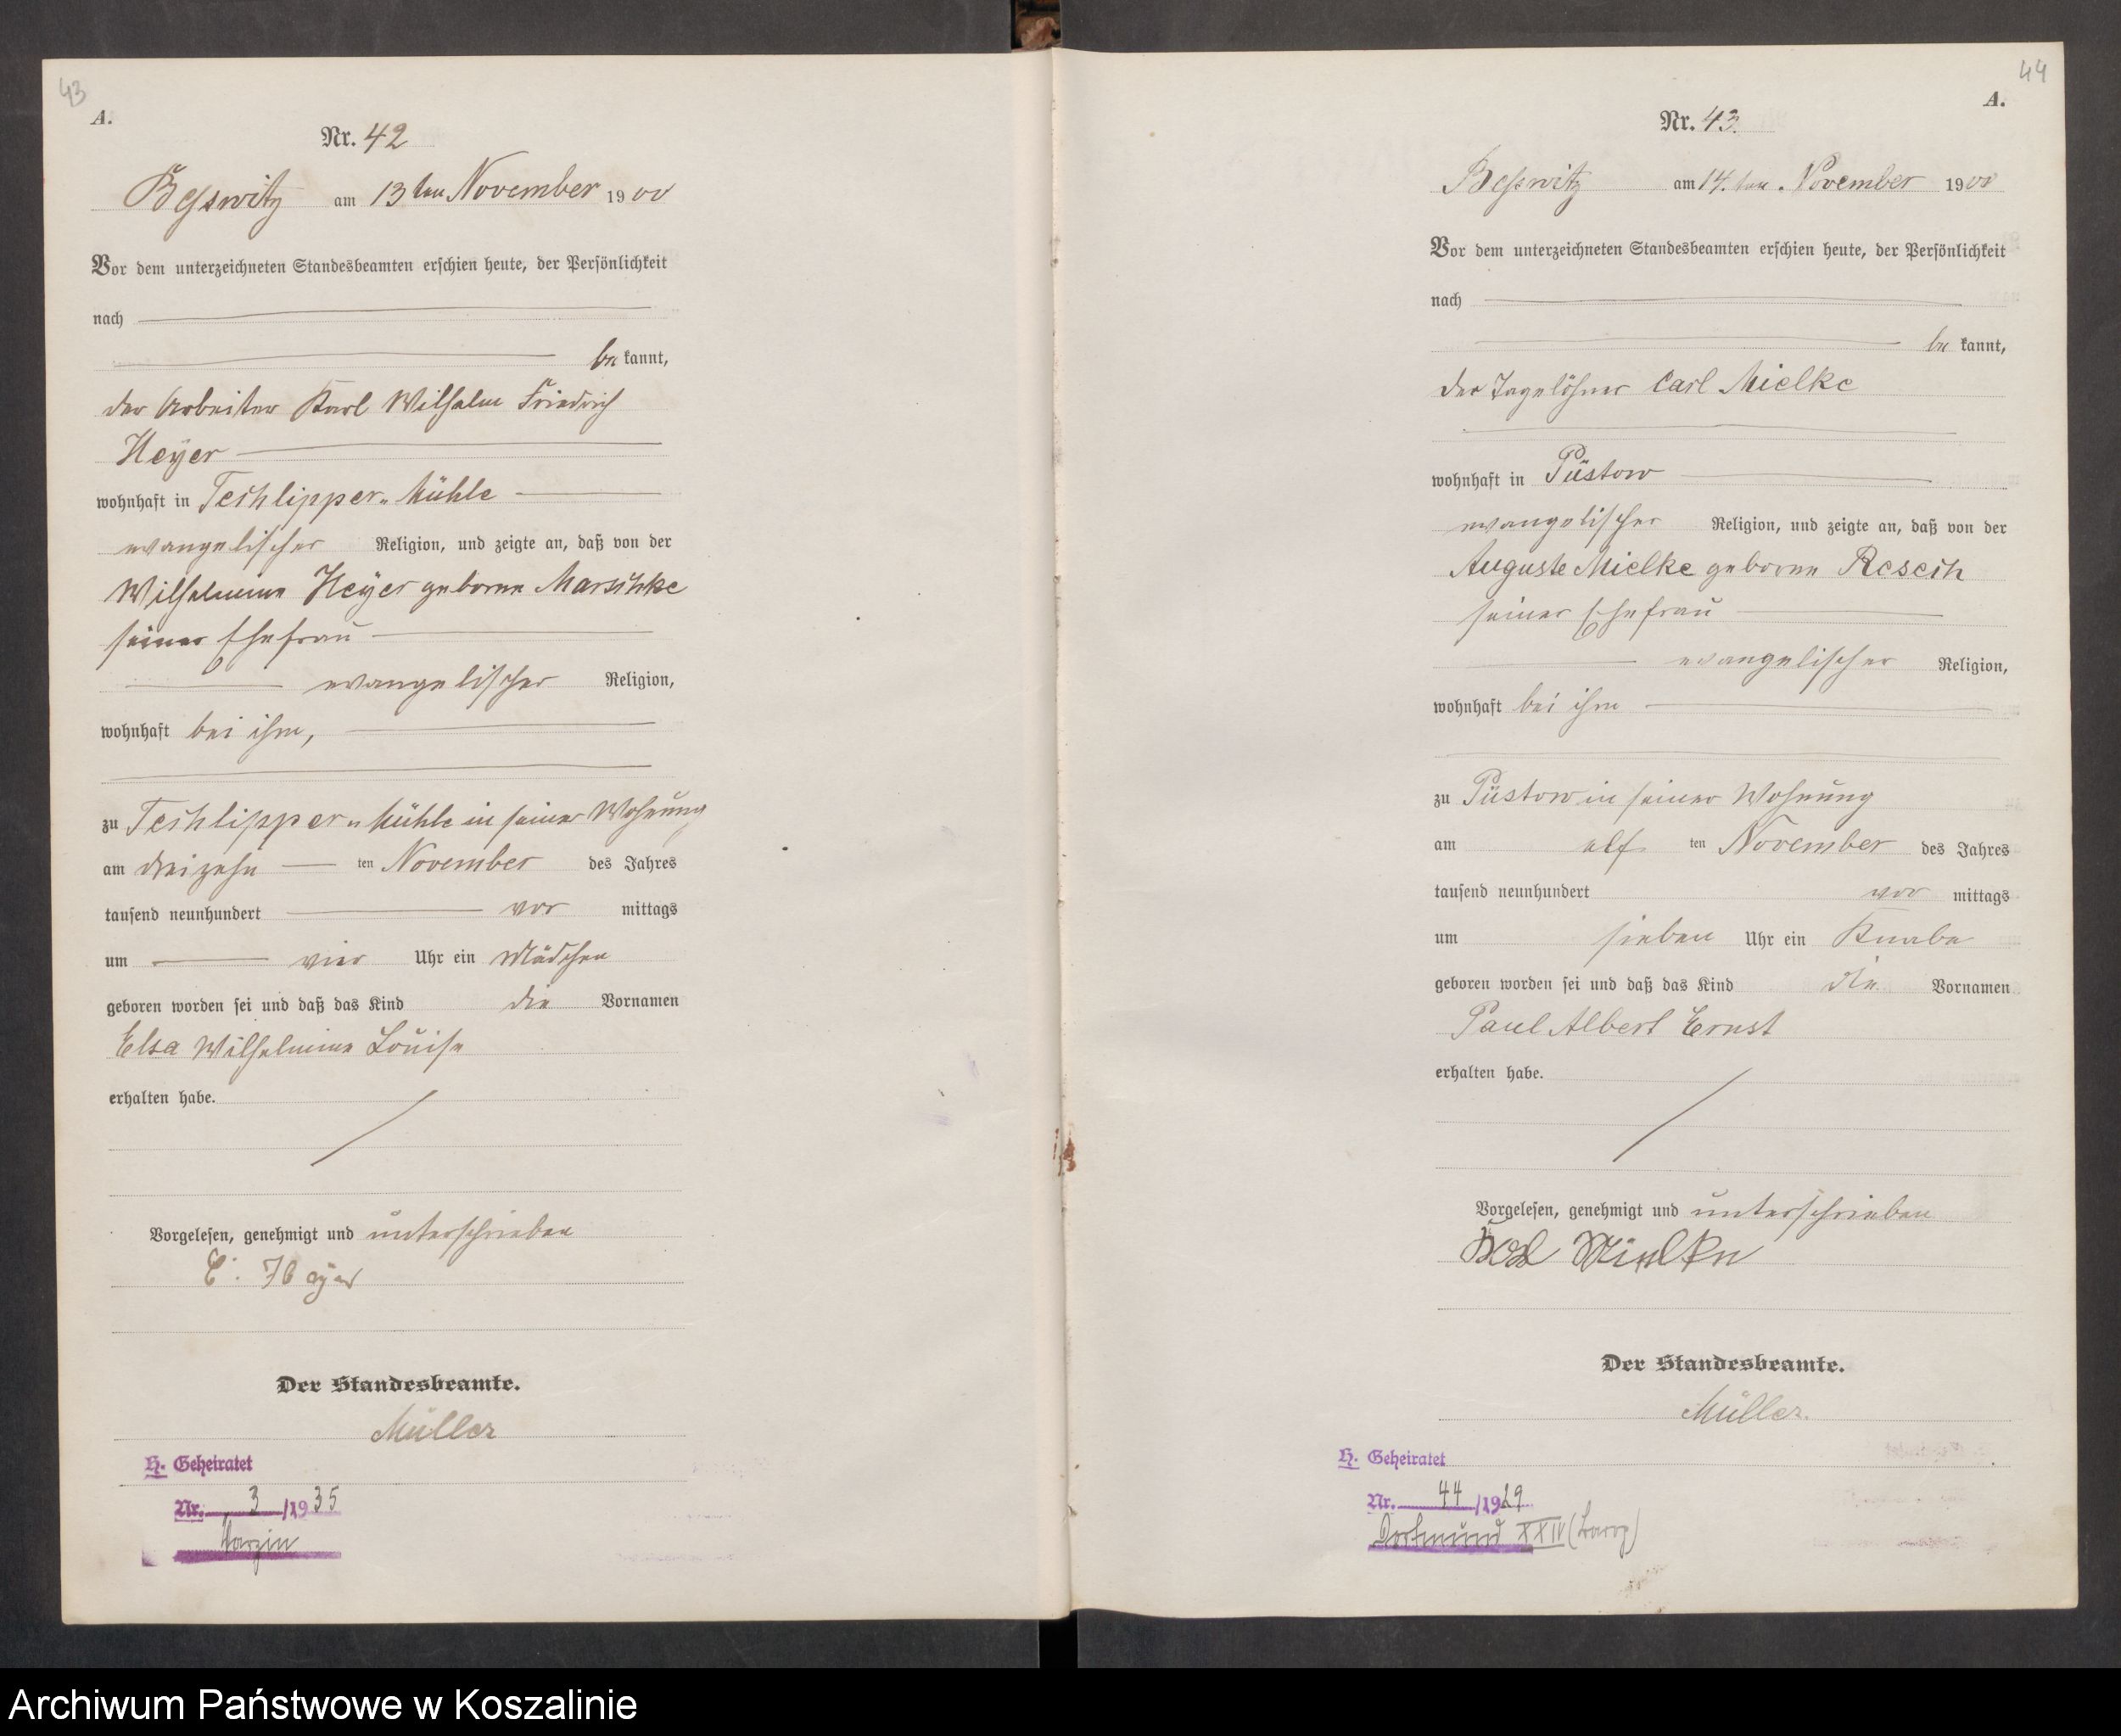 43
A.
Nr. 42
Beßwitz am 13ten November 1900
Vor dem unterzeichneten Standesbeamten erschien heute, der Persönlichkeit
nach
be kannt,
der Arbeiter Karl Wilhelm Friedrich
Heyer
wohnhaft in Techlipper-Mühle
evangelischer Religion, und zeigte an, daß von der
Wilhelmine Heyer geborne Marschke
seiner Ehefrau
evangelischer Religion,
wohnhaft bei ihm,
zu Techlipper-Mühle in seiner Wohnung
am dreizehn ten November des Jahres
tausend neunhundert vor mittags
um vier Uhr ein Mädchen
geboren worden sei und daß das Kind die Vornamen
Elsa Wilhelmine Louise
erhalten habe.
Vorgelesen, genehmigt und unterschrieben
C. Heyer
Der Standesbeamte.
Müller
H. Geheiratet
Nr. 3 /1935
Varzin
44
A.
Nr. 43.
Beßwitz am 14. ten November 1900
Vor dem unterzeichneten Standesbeamten erschien heute, der Persönlichkeit
nach
be kannt,
der Tagelöhner Carl Mielke
wohnhaft in Püstow
evangelischer Religion, und zeigte an, daß von der
Auguste Mielke geborne Resech
seiner Ehefrau
evangelischer Religion,
wohnhaft bei ihm
zu Püstow in seiner Wohnung
am elf ten November des Jahres
tausend neunhundert vor mittags
um sieben Uhr ein Knabe
geboren worden sei und daß das Kind die Vornamen
Paul Albert Ernst
erhalten habe.
Vorgelesen, genehmigt und unterschrieben
Karl Mielke
Der Standesbeamte.
Müller.
H. Geheiratet
Nr. 44 /1929
Dortmund XXIV (Barop)
Archiwum Państwowe w Koszalinie